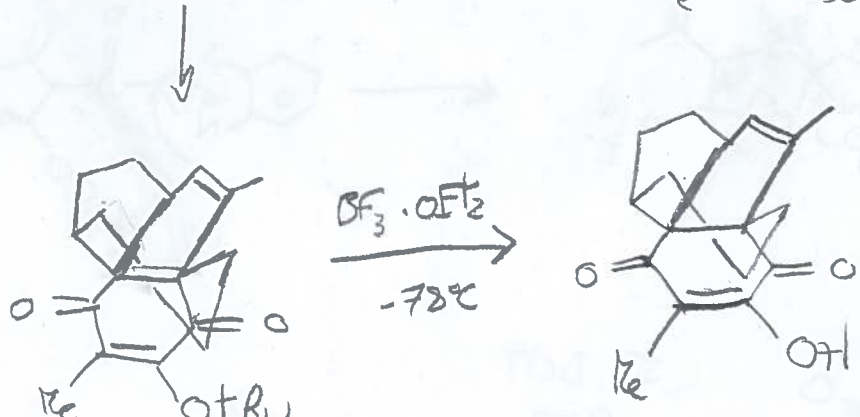 BF3 · OEt2
-78°C
O
O
O
O
Me
OtBu
Me
OH